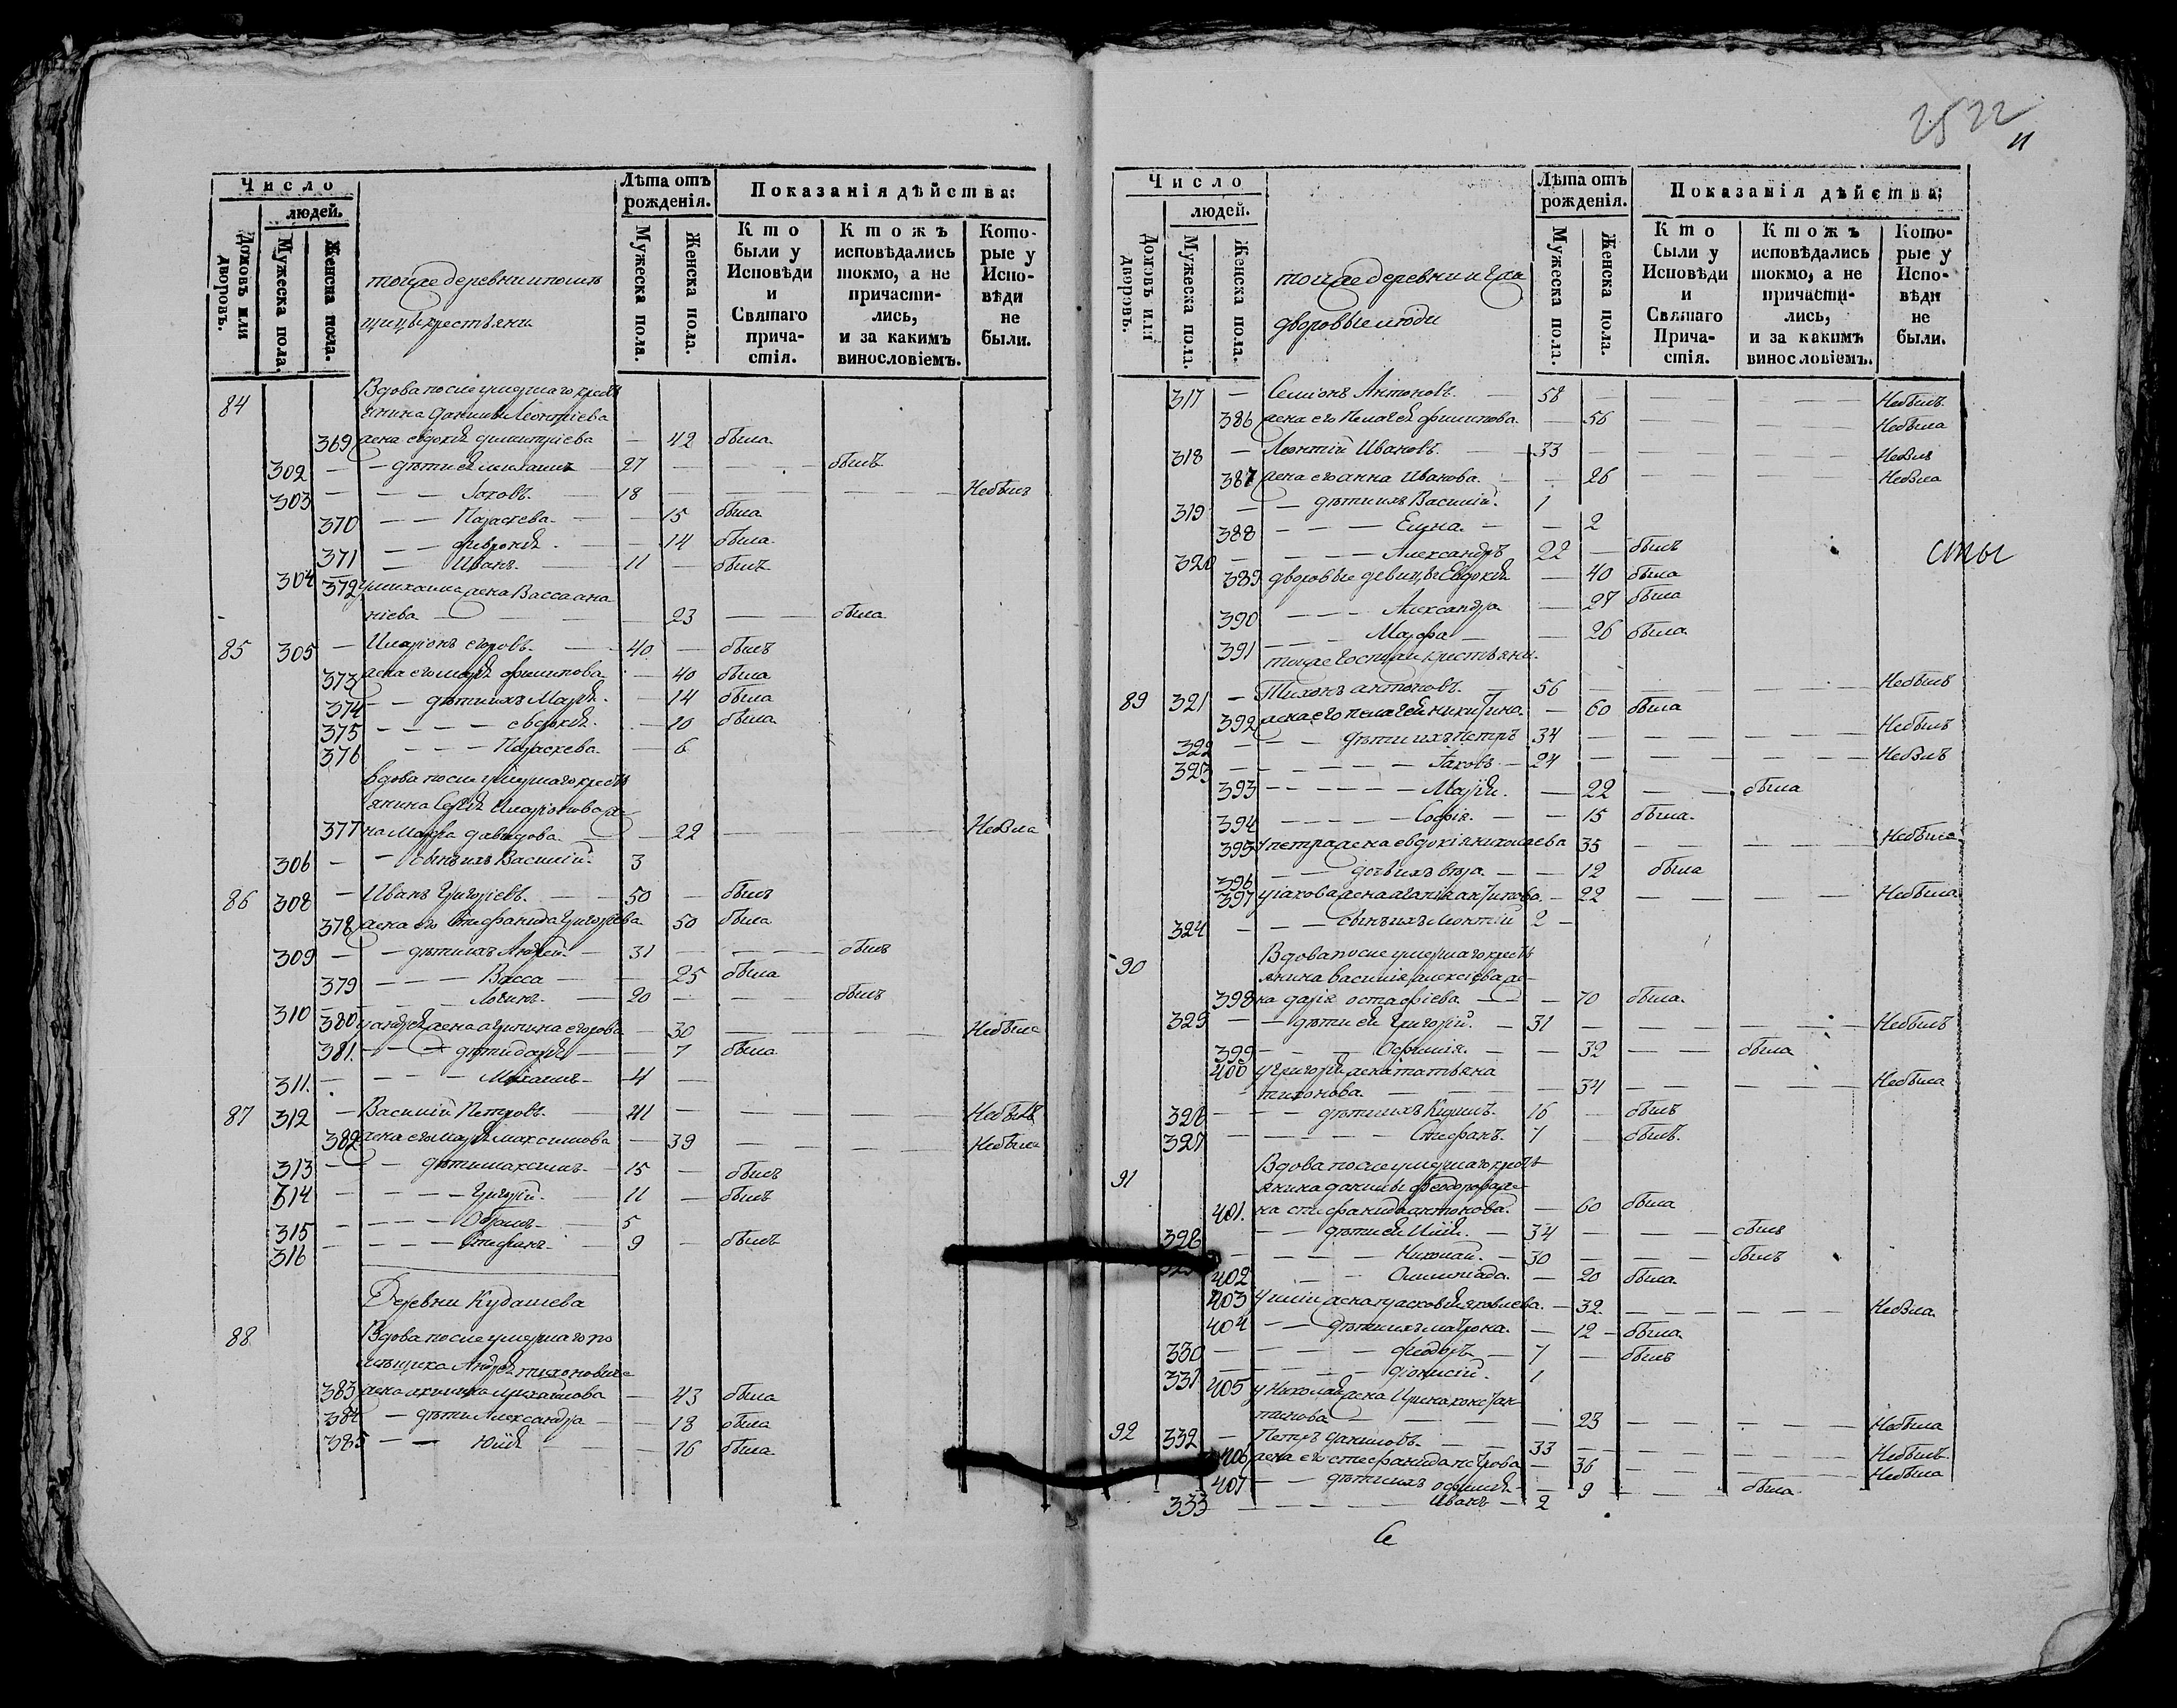 Число
людей.
Домовъ или дворовъ.
Мужеска пола.
Женска пола.
тойже деревни
крестьяни
Лѣта отъ рожденія.
Мужеска пола.
Женска пола.
Показанія дѣйства:
Кто были у Исповѣди и Святаго причастія.
Ктожъ исповѣдались токмо, а не причастились, и за какимъ винословіемъ.
Которые у Исповѣди не были.
84 Вдова после умершаго кресть
янина Данилы Леонтиева
369 жена евдокія димитріева — 42 была
302 — — дѣти ея михаилъ — 27 — — — былъ
303 — — — Іаковъ — 18 — — — Небылъ
370 — — Параскева — — 15 была
371 — — февронія — — 14 была
304 — — Иванъ — 11 — былъ
372 умихаила жена Васса ана
ніева — — 23 — — была
85 305 — Иларіонъ егоровъ — 40 — былъ
373 жена его марія филипова — 40 была
374 — — дѣти ихъ Марія — 14 была
375 — — — евдокія — 10 была
376 — — — Параскева — 6
вдова после умершаго кресть
янина Сергія Иларіонова же
377 на Марфа давыдова — — 22 — — Небыла
306 — — сынъ ихъ Василій — 3
86 308 — Иванъ Григоріевъ — 50 — былъ
378 жена его Стефанида Григорьева 50 была
309 — — дѣти ихъ Андрей — 31 — — — былъ
379 — — — Васса — — 25 была
310 — — — Логинъ — 20 — — — былъ
380 у андрея жена агрипина егорова — 30 — — — Небыла
381 — — — дѣти дарія — — 7 была
311 — — — Михаилъ — 4 —
87 312 — Василій Петровъ — 41 — — — Небылъ
382 жена его Марія максимова — 39 — — — Небыла
313 — — дѣти максимъ — 15 — былъ
314 — — — Григорій — 11 — былъ
315 — — — — 5
316 — — — Стефанъ — 9 — былъ
Деревни Кудашева
88 Вдова после умершаго по
мѣщика Андрея тихоновича
383 жена акилина михайлова — 43 была
384 — дѣти Александра — 18 была
385 — — Юлія — — 16 была
2522
11
Число
людей.
Домовъ или дворовъ.
Мужеска пола.
Женска пола.
тойже деревни
дворовые люди
Лѣта отъ рожденія.
Мужеска пола.
Женска пола.
Показанія дѣйства:
Кто были у Исповѣди и Святаго Причастія.
Ктожъ исповѣдались токмо, а не причастились, и за какимъ винословіемъ.
Которые у Исповѣди не были.
317 — Семіонъ Антоновъ — 58 — — — Небылъ
386 жена его Пелагея филипова — 56 — — — Небыла
318 — Леонтій Ивановъ — 33 — — — Небылъ
387 жена его анна Иванова — — 26 — — — Небыла
319 — — дѣти ихъ Василій 1
388 — — — Елена — — 2
320 — — — — Александръ 22 — былъ
сты
389 дворовые девицы Евдокія — 40 была
390 — — — Александра — 27 была
391 — — — Марфа — — 26 была
тоиже Госпожи крестьяни
89 321 — Тихонъ антоновъ — 56 — — — Небылъ
392 жена его пелагея никитина — 60 была
322 — — — дѣти ихъ петръ 34 — — — Небылъ
323 — — — — Іаковъ — 24 — — — Небылъ
393 — — — — Марія — 22 — — была
394 — — — — Софія — — 15 была
395 у петра жена евдокія николаева 35 — — — Небыла
396 — — дочь ихъ вера — — 12 была
397 у іакова жена агапія антипова — 22 — — — Небыла
324 — — — сынъ ихъ леонтій 2 —
90 Вдова после умершаго кресть
янина василія алексіева же
398 на дарія остафіева — — 70 была
325 — — дѣти ея Григорій — 31 — — — Небылъ
399 — — — Офимія — — 32 — — была
400 у Григорія жена татьяна
тихонова — — 34 — — — Небыла
326 — — — дѣти ихъ Кирилъ 16 — былъ
327 — — — — Стефанъ 7 — былъ
91 Вдова после умершаго кресть
янина данилы феодорова же
401 на стефанида антонова — 60 была
328 — — дѣти ея Илія — 34 — — — былъ
— — — Николай — 30 — — — былъ
402 — — Олимпіада — 20 была
403 у иліи жена прасковія яковлева — 32 — — — Небыла
404 — — дѣти ихъ матрона — 12 — была
330 — — — феодоръ — 7 — былъ
331 — — — діонисій 1
405 у Николая жена Ирина констан
тинова — — 23 — — — Небыла
92 332 — Петръ даниловъ — 33 — — — Небылъ
406 жена его стефанида петрова — 36 — — — Небыла
407 — — дѣти ихъ офимія — 9 — — была
333 — — — Иванъ — 2